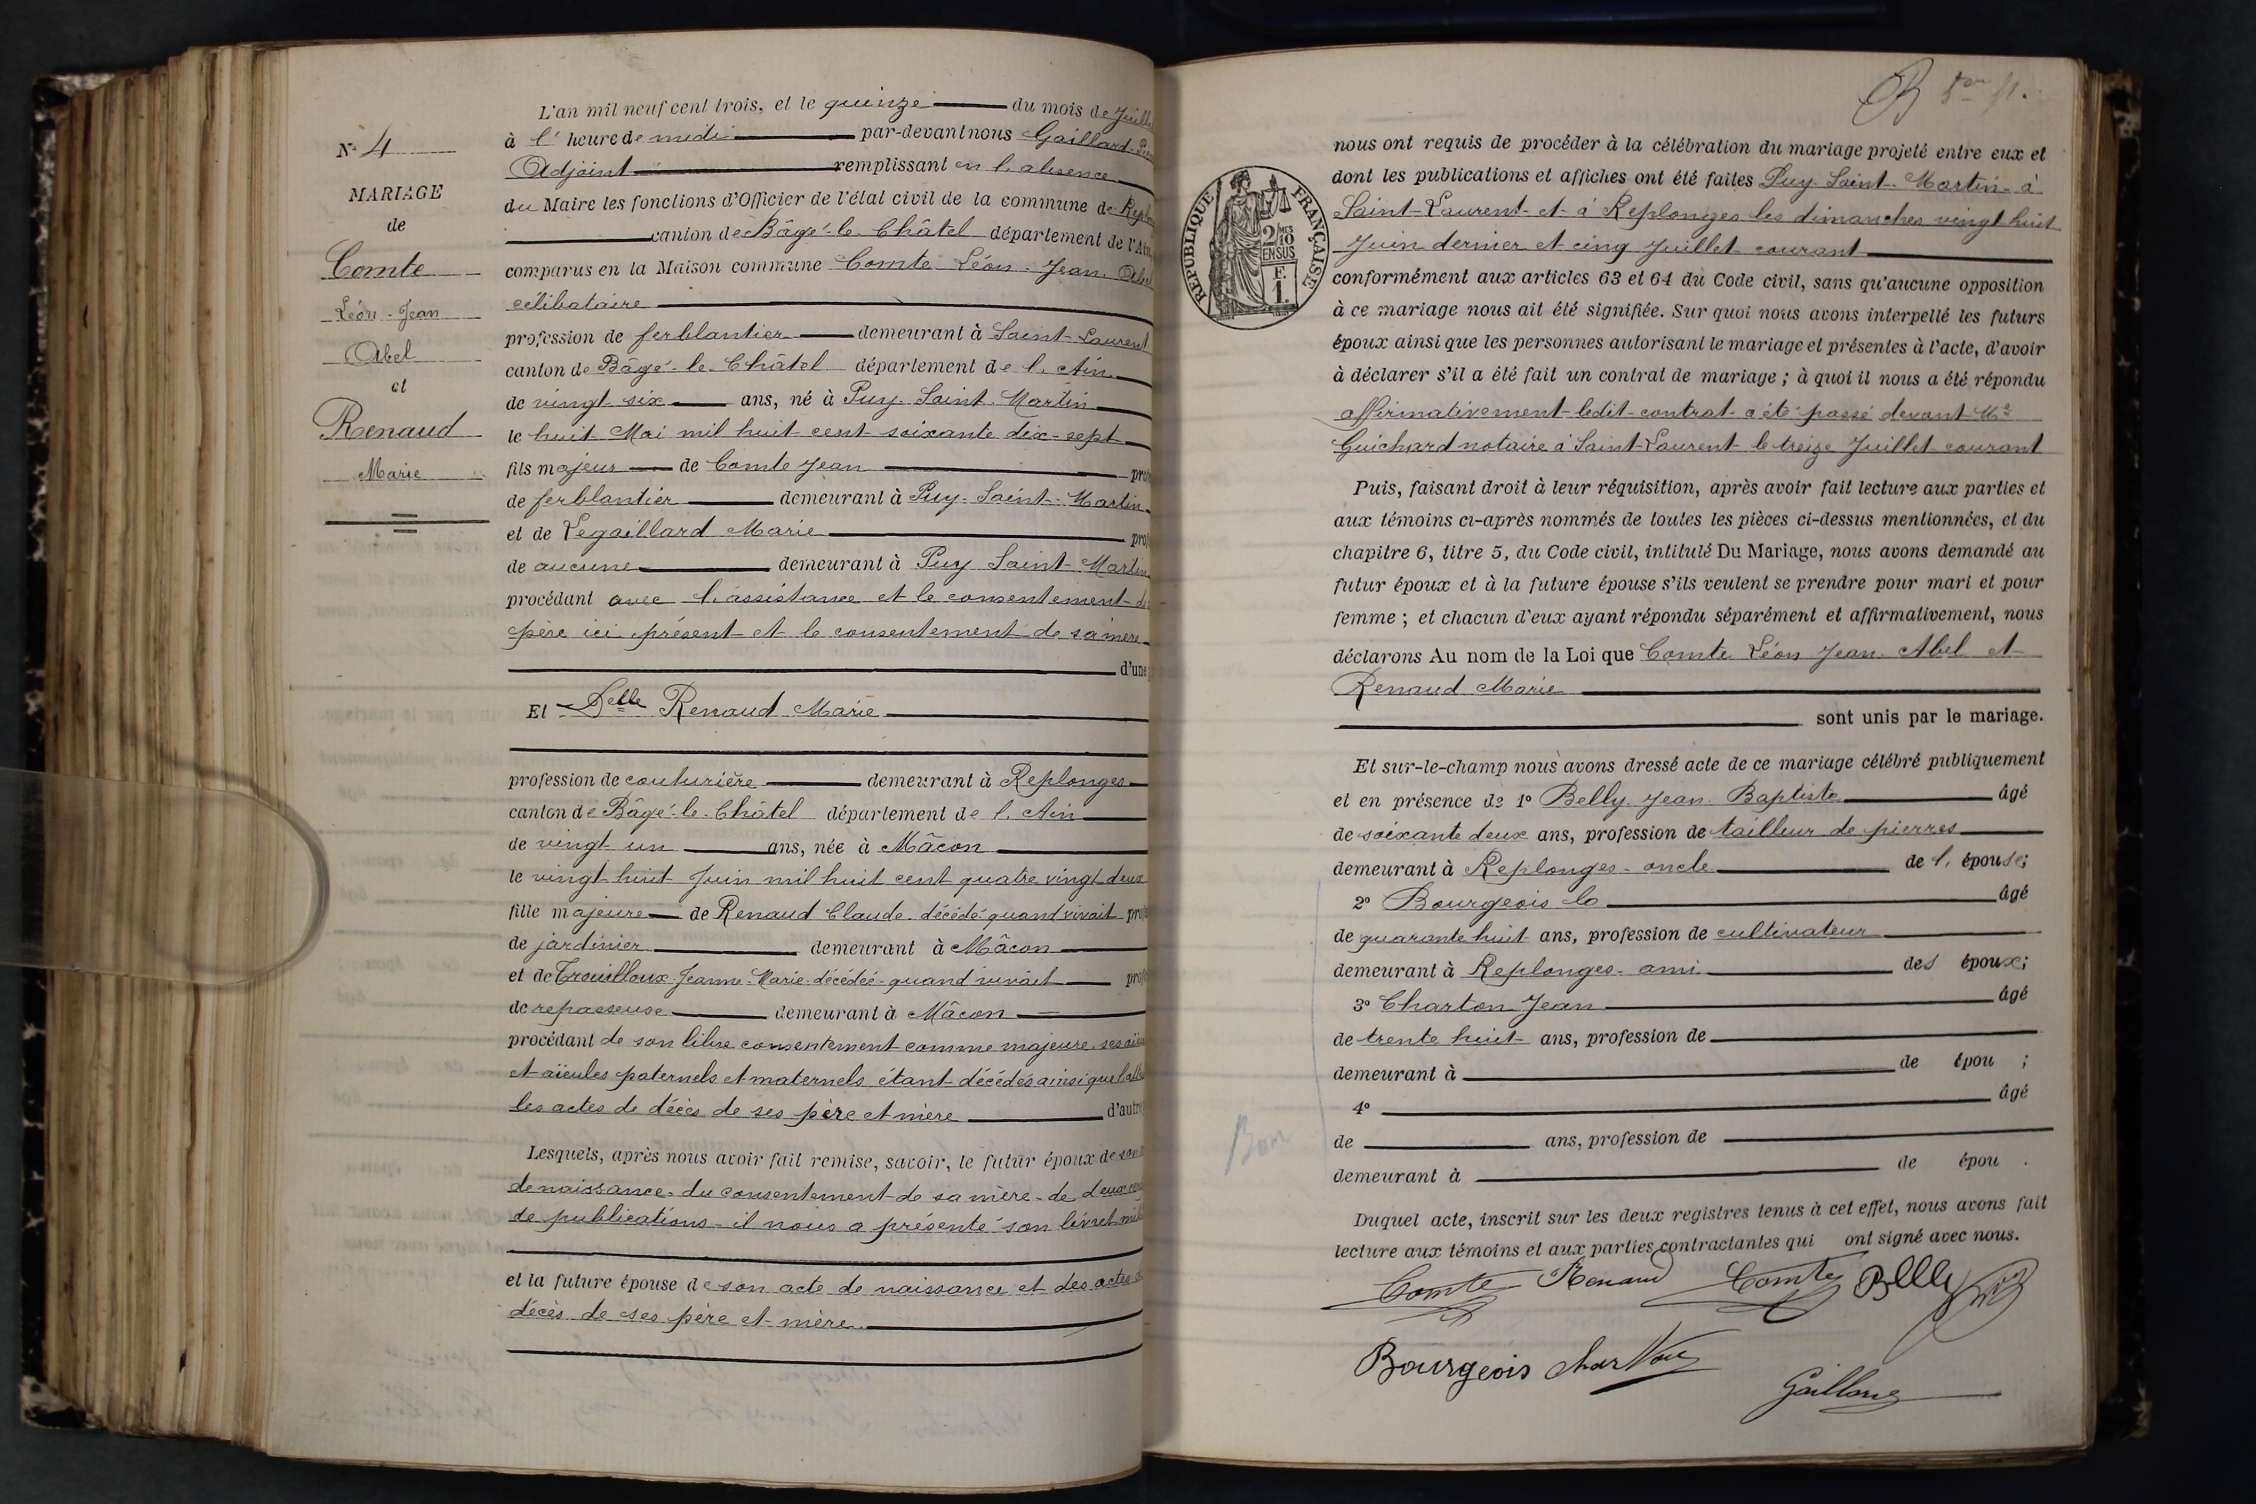 N° 4
MARIAGE
de
Comte
Léon-Jean
Abel
et
Renaud
Marie
L'an mil neuf cent trois, et le quinze du mois de Juillet
à l' heure de midi par-devant nous Gaillard
Adjoint remplissant en l'absence
du Maire les fonctions d'Officier de l'état civil de la commune de
canton de Bâgé-le-Châtel département de l'Ain,
comparus en la Maison commune Comte Léon-Jean Abel
célibataire
profession de ferblantier demeurant à Saint-Laurent
canton de Bâgé-le-Châtel département de l'Ain
de vingt six ans, né à Puy-Saint-Martin
le huit Mai mil huit cent soixante dix-sept
fils majeur de Comte Jean
de ferblantier demeurant à Puy-Saint-Martin
et de Legaillard Marie
de aucune demeurant à Puy Saint-Martin
procédant avec l'assistance et le consentement
père ici présent et le consentement de sa mère
d'une
Et Delle Renaud Marie
profession de couturière demeurant à Replonges
canton de Bâgé-le-Châtel département de l'Ain
de vingt un ans, née à Mâcon
le vingt huit Juin mil huit cent quatre vingt deux
fille majeure de Renaud Claude décédé quand vivait
de jardinier demeurant à Mâcon
et de Trouilloux Jeanne-Marie décédée quand vivait
de repasseuse demeurant à Mâcon
procédant de son libre consentement comme majeure ses
et aïeules paternels et maternels étant décédés ainsi que
les actes de décès de ses père et mère d'autre
Lesquels, après nous avoir fait remise, savoir, le futur époux de
de naissance du consentement de sa mère de deux
de publications il nous a présenté son livret
et la future épouse de son acte de naissance et des actes
décès de ses père et mère
RÉPUBLIQUE FRANÇAISE
2/10 MES
EN SUS
F.
1.
nous ont requis de procéder à la célébration du mariage projeté entre eux et
dont les publications et affiches ont été faites Puy-Saint-Martin à
Saint-Laurent et à Replonges les dimanches vingt huit
Juin dernier et cinq Juillet courant
conformément aux articles 63 et 64 du Code civil, sans qu'aucune opposition
à ce mariage nous ait été signifiée. Sur quoi nous avons interpellé les futurs
époux ainsi que les personnes autorisant le mariage et présentes à l'acte, d'avoir
à déclarer s'il a été fait un contrat de mariage ; à quoi il nous a été répondu
affirmativement ledit contrat a été passé devant Me
Guichard notaire à Saint-Laurent le treize Juillet courant
Puis, faisant droit à leur réquisition, après avoir fait lecture aux parties et
aux témoins ci-après nommés de toutes les pièces ci-dessus mentionnées, et du
chapitre 6, titre 5, du Code civil, intitulé Du Mariage, nous avons demandé au
futur époux et à la future épouse s'ils veulent se prendre pour mari et pour
femme ; et chacun d'eux ayant répondu séparément et affirmativement, nous
déclarons Au nom de la Loi que Comte Léon Jean Abel et
Renaud Marie
sont unis par le mariage.
Et sur-le-champ nous avons dressé acte de ce mariage célébré publiquement
et en présence de 1° Belly Jean Baptiste âgé
de soixante deux ans, profession de tailleur de pierres
demeurant à Replonges - oncle de l'épouse;
2° Bourgeois âgé
de quarante huit ans, profession de cultivateur
demeurant à Replonges - ami des époux;
3° Charton Jean âgé
de trente huit ans, profession de
demeurant à de épou ;
4° âgé
de ans, profession de
demeurant à de épou .
Duquel acte, inscrit sur les deux registres tenus à cet effet, nous avons fait
lecture aux témoins et aux parties contractantes qui ont signé avec nous.
Comte Renaud Comte Belly
Bourgeois Charton
Gaillard